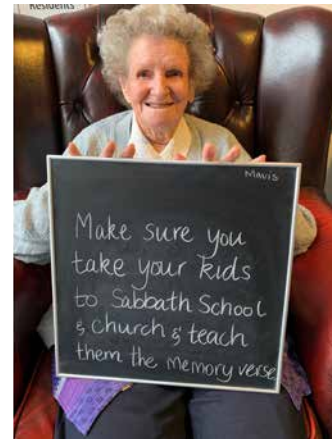 Residents
Mavis
Make sure you
take your kids
to Sabbath School
& church & teach
them the memory verse